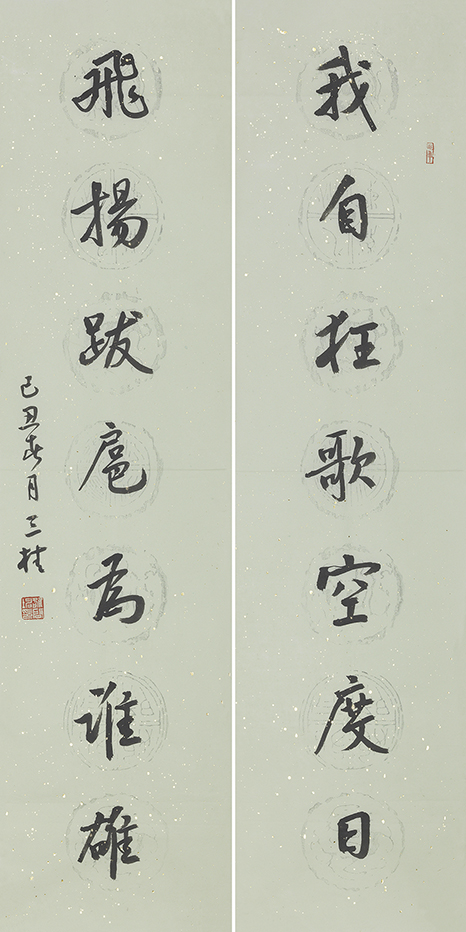 我自狂歌空度日
飛揚跋扈為誰雄
己丑春月三桂